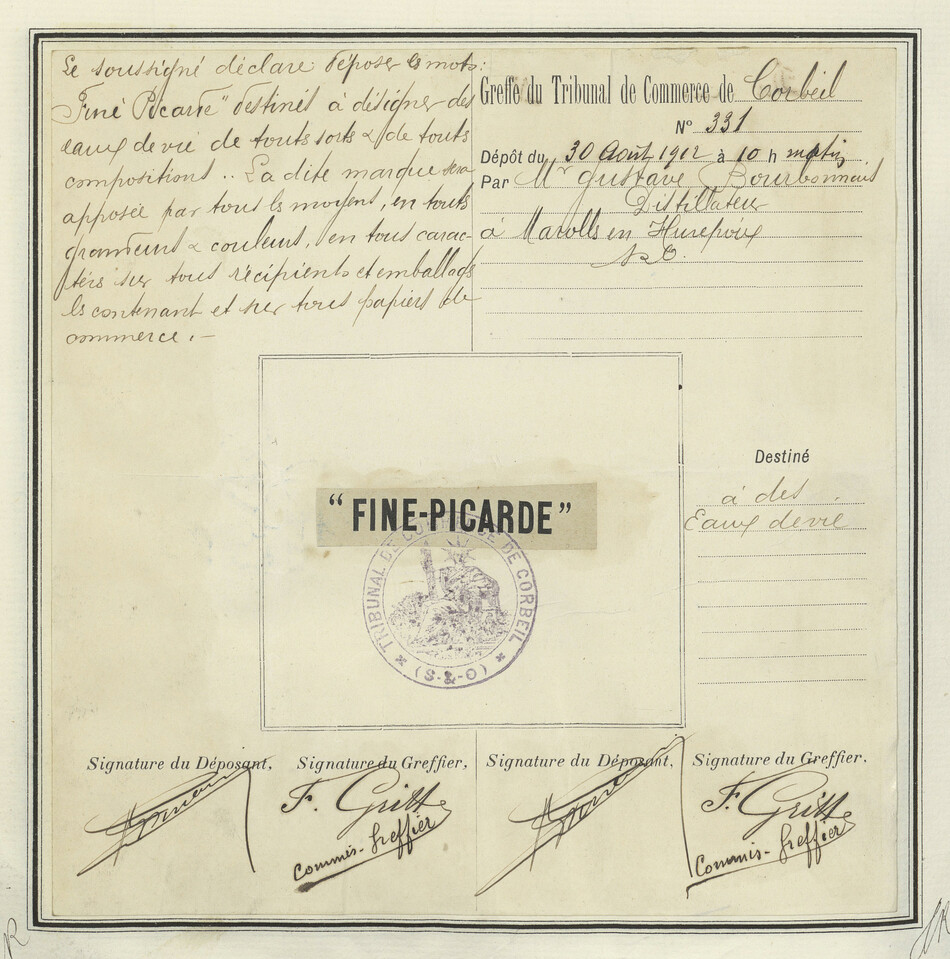 Le soussigné déclare déposer les mots:
"Fine Picarde" destinés à désigner des
eaux de vie de toutes sortes & de toutes
compositions.. La dite marque sera
apposée par tous les moyens, en toutes
grandeurs & couleurs, en tous carac-
tères sur tous récipients et emballages
les contenant et sur tous papiers de
commerce.-
Greffe du Tribunal de Commerce de Corbeil
N° 331
Dépôt du 30 Août 1912 à 10 h matin
Par Mr Gustave Bourbonnais
Distillateur
à Marolles en Hurepoix
S&O.
"FINE-PICARDE"
TRIBUNAL DE COMMERCE DE CORBEIL
(S-&-O)
Destiné
à des
Eaux de vie
Signature du Déposant,
Signature du Greffier,
F. Gritte
Commis-Greffier
Signature du Déposant,
Signature du Greffier.
F. Gritte
Commis-Greffier